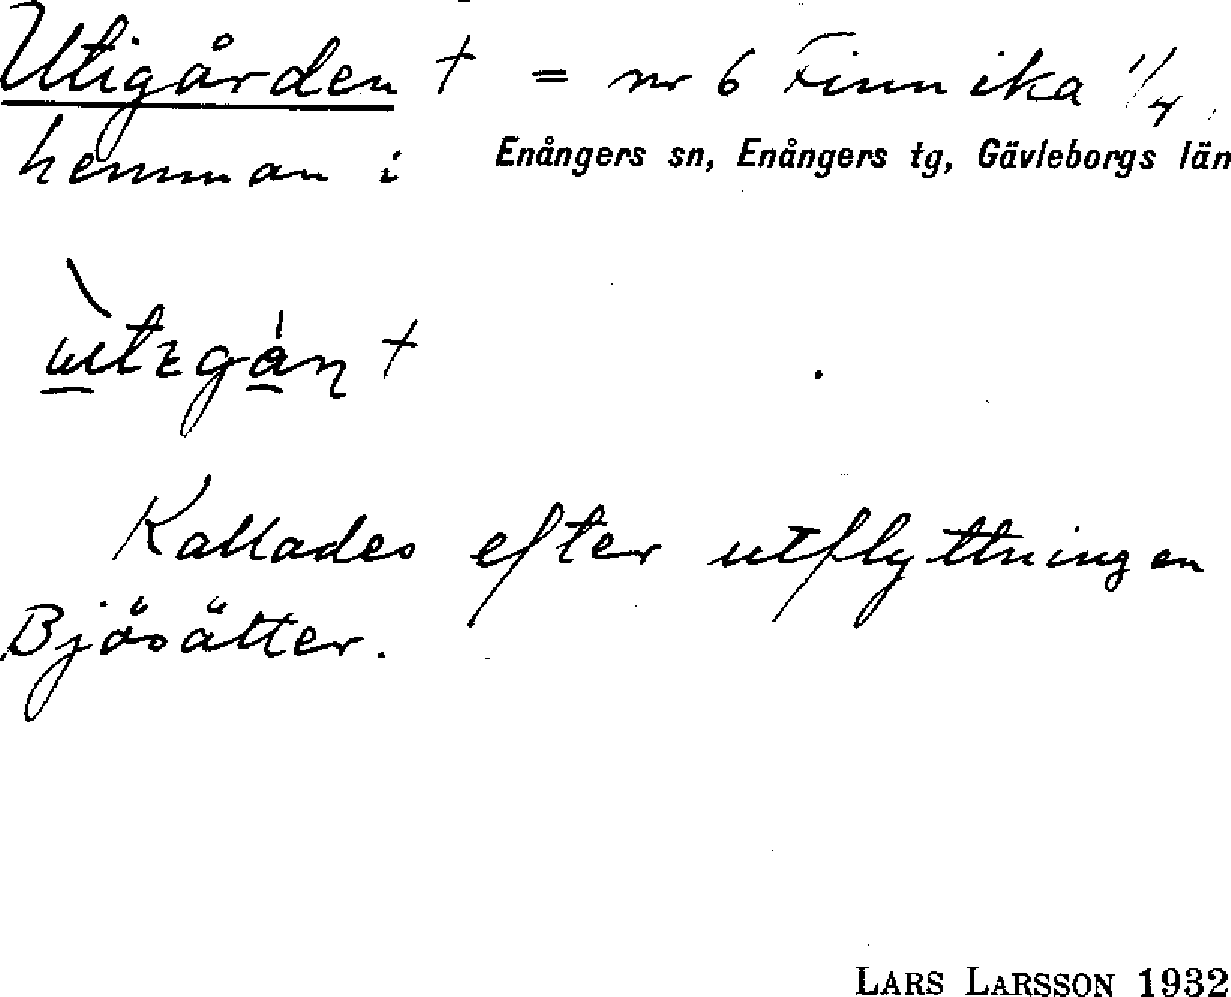 Utigården † = nr 6 Finnika 1/4,
hemman i Enångers sn, Enångers tg, Gävleborgs län
Kallades efter utflyttningen
Bjösätter.
LARS LARSSON 1932